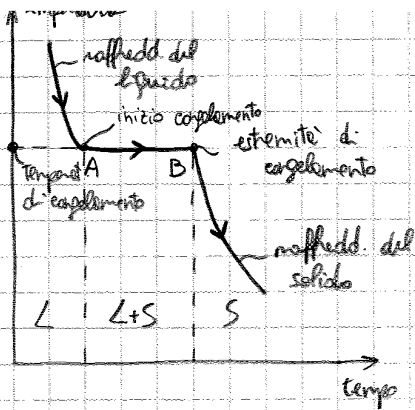 raffredd. del
liquido
inizio congelamento
A
B
estremità di
congelamento
Temperat
di congelamento
raffredd. del
solido
L
L+S
S
tempo